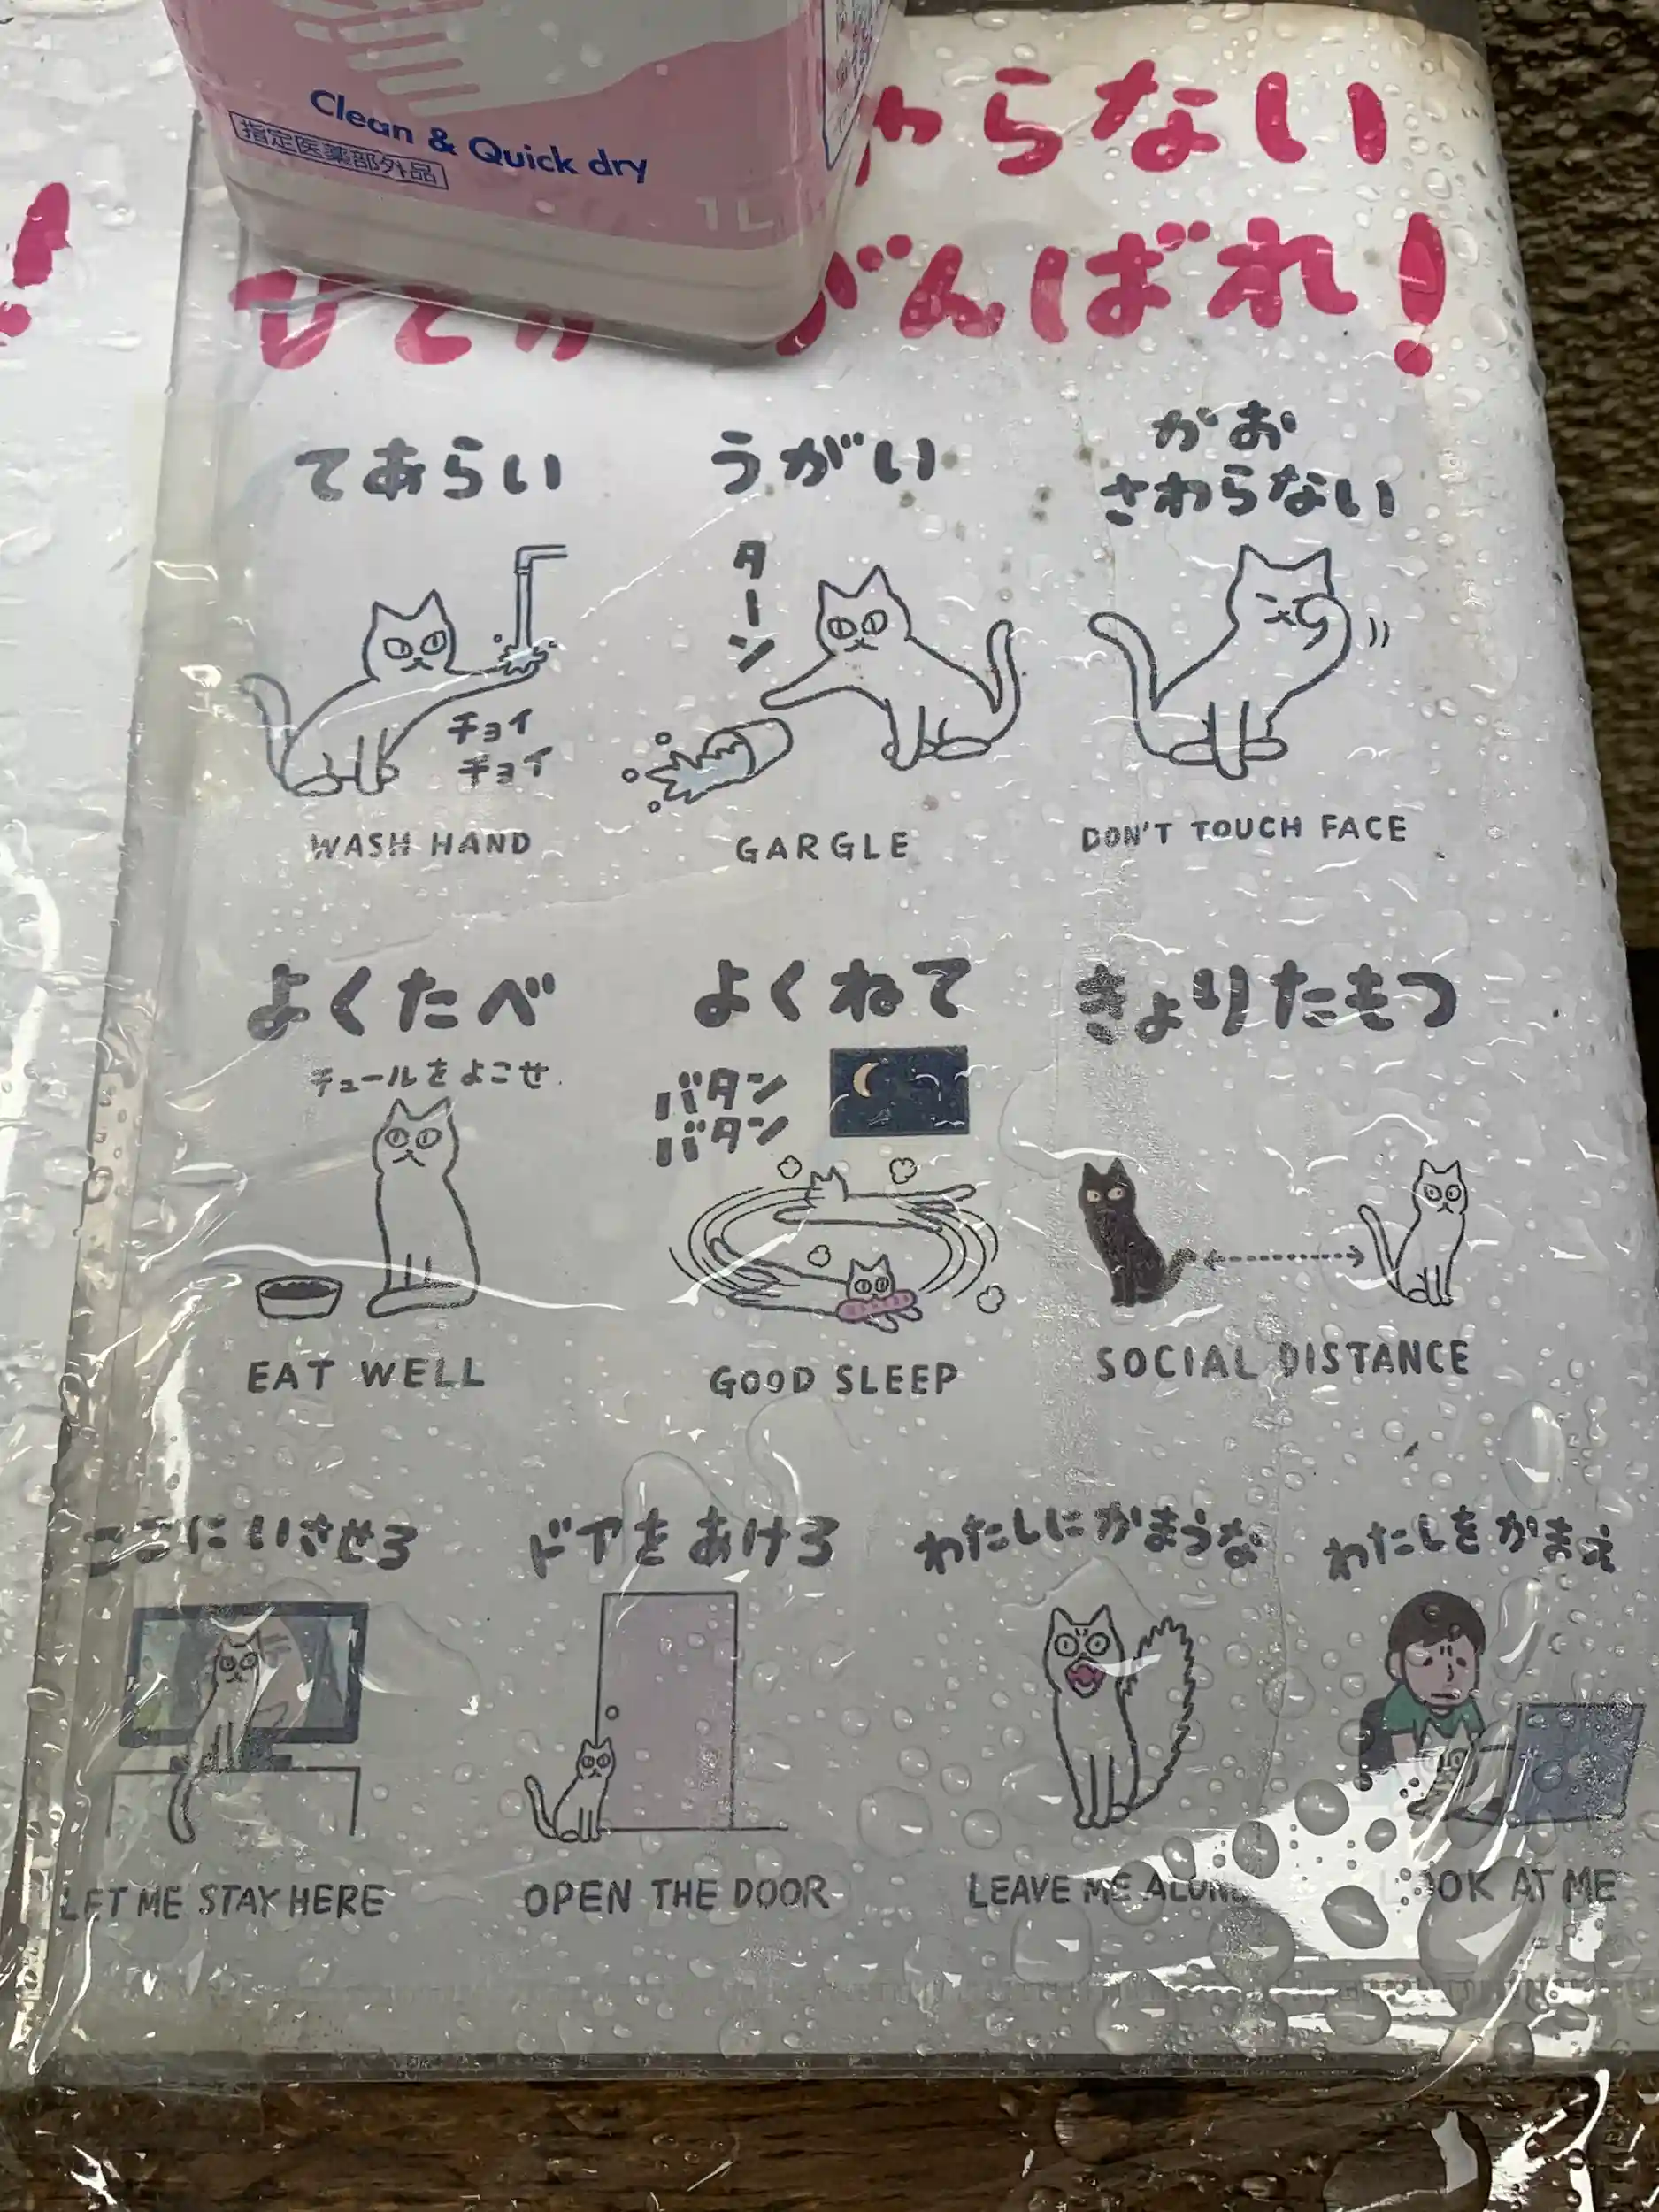 Clean & Quick dry
指定医薬部外品
1L
わらない
がんばれ!
!
てあらい
うがい
かお
さわらない
ターン
チョイ
チョイ
WASH HAND
GARGLE
DON'T TOUCH FACE
よくたべ
よくねて
きょりたもつ
チュールをよこせ
バタン
バタン
EAT WELL
GOOD SLEEP
SOCIAL DISTANCE
ここにいさせろ
ドアをあけろ
わたしにかまうな
わたしをかまえ
LET ME STAY HERE
OPEN THE DOOR
LEAVE ME ALONE
LOOK AT ME